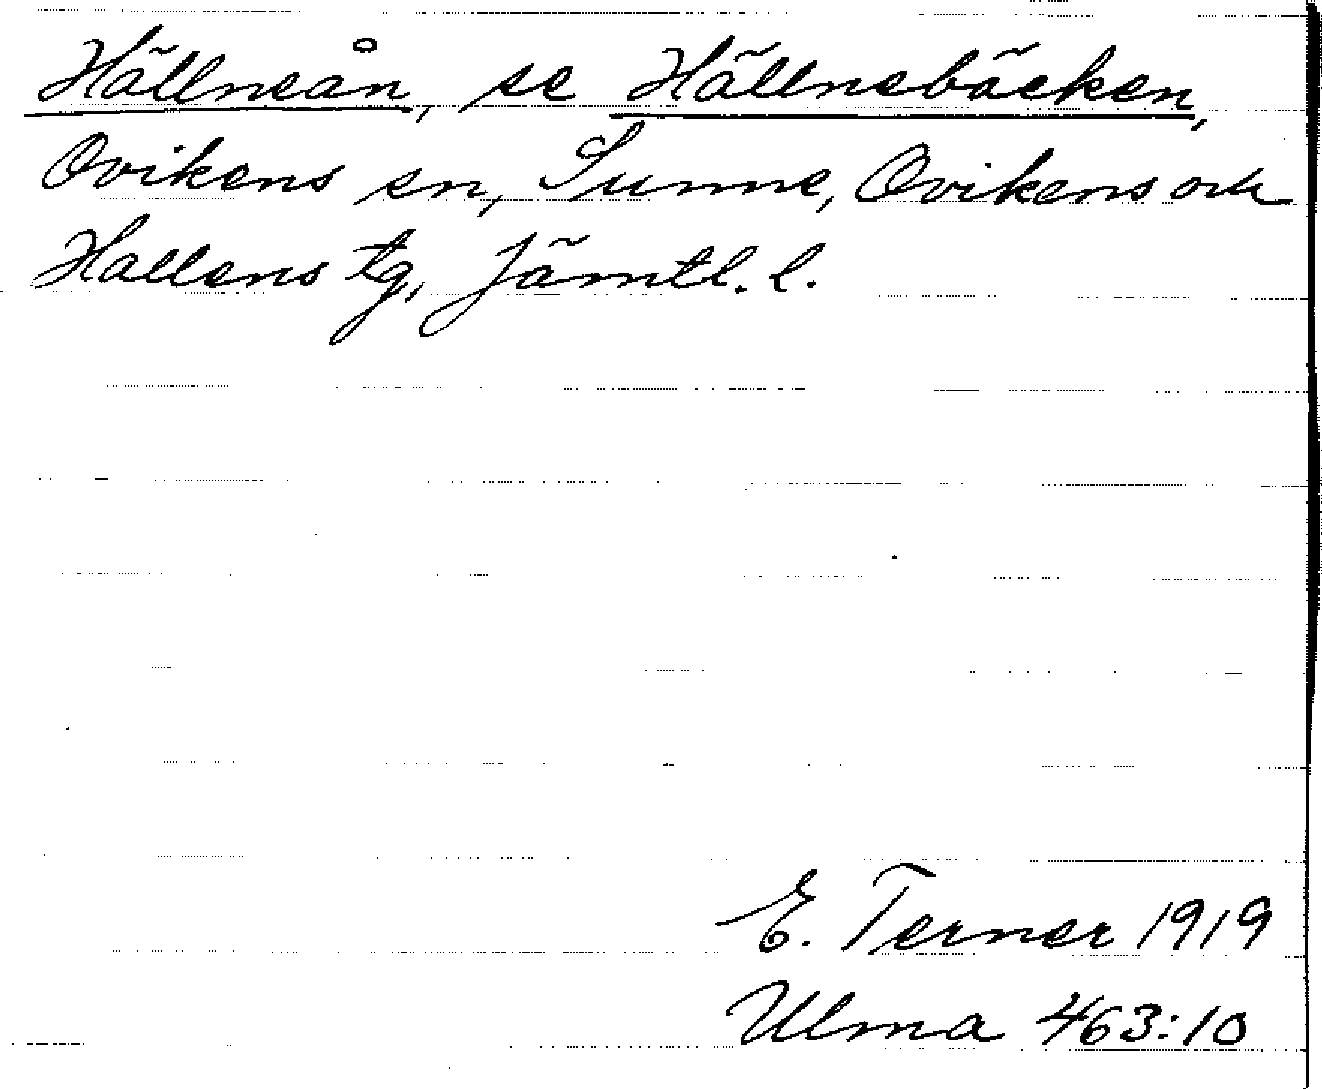 Hällneån, se Hällnebäcken,
Ovikens sn, Sunne, Ovikens och
Hallens tg, Jämtl. l.
E. Terner 1919
Ulma 463:10